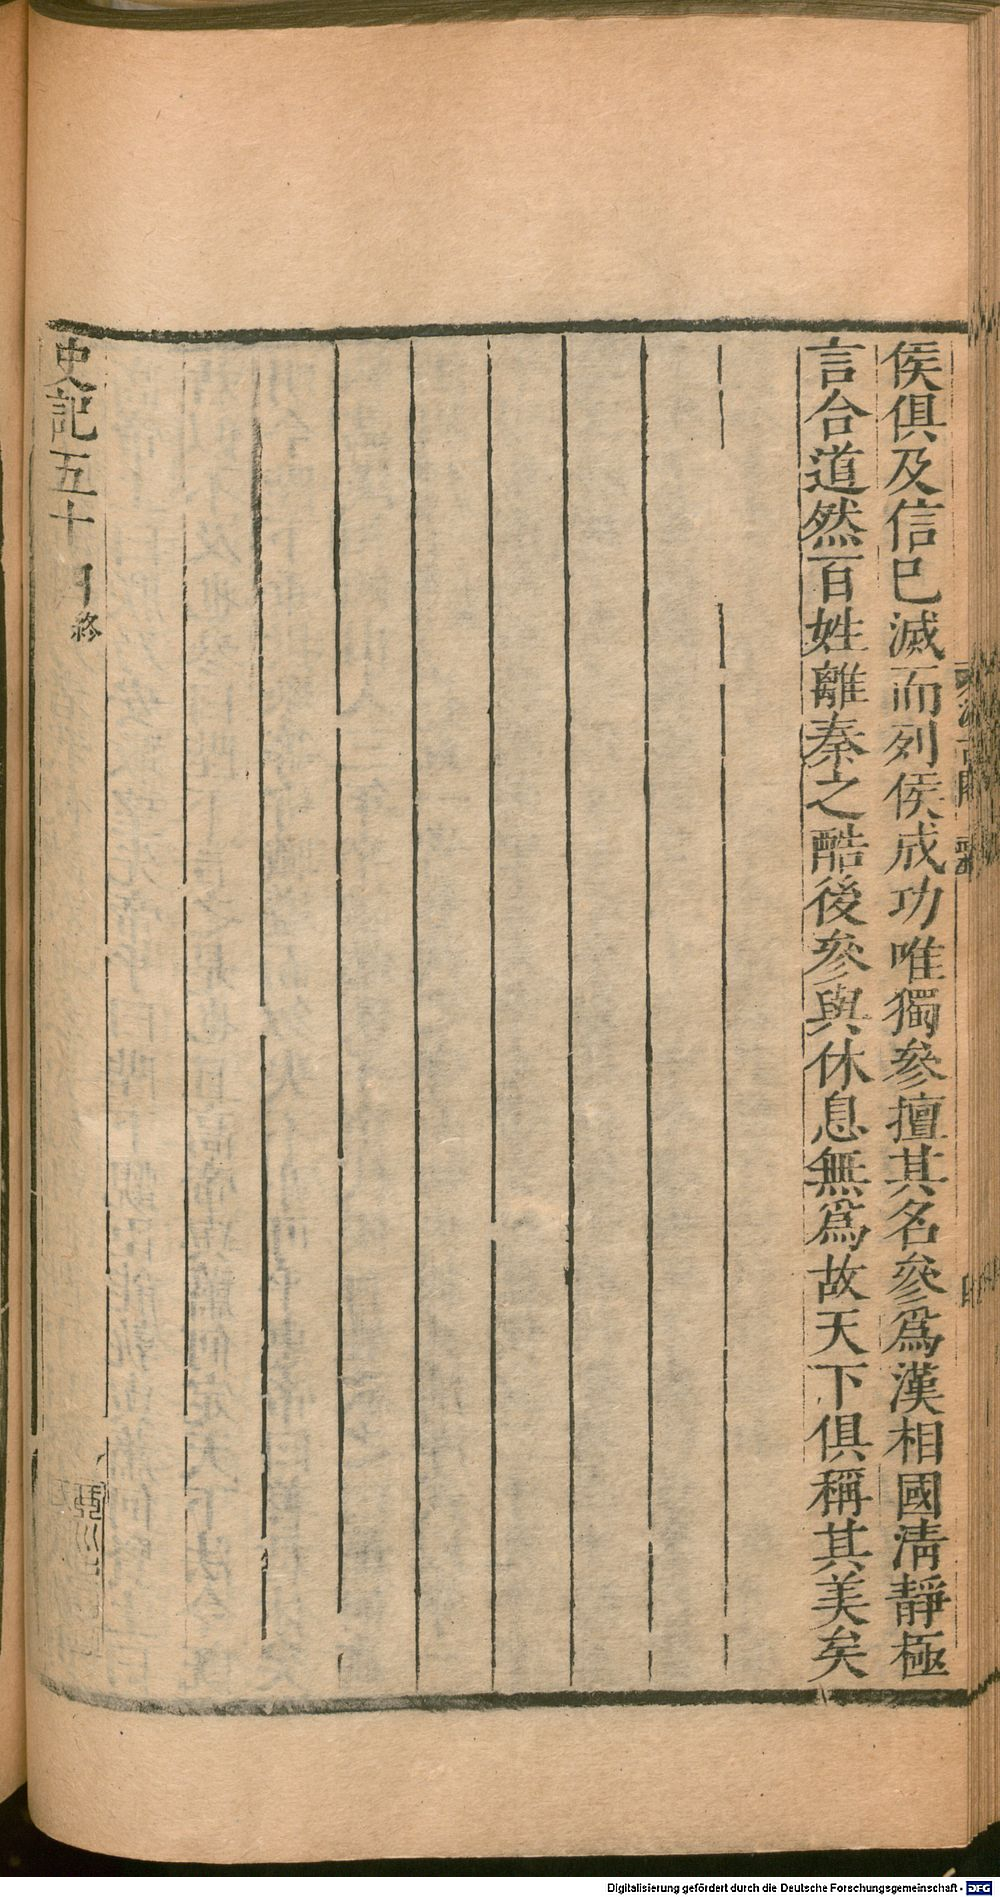 侯俱及信已滅而列侯成功唯獨參擅其名參爲漢相國淸靜極
言合道然百姓離秦之酷後參與休息無爲故天下俱稱其美矣
史記五十
終
Digitalisierung gefördert durch die Deutsche Forschungsgemeinschaft - DFG